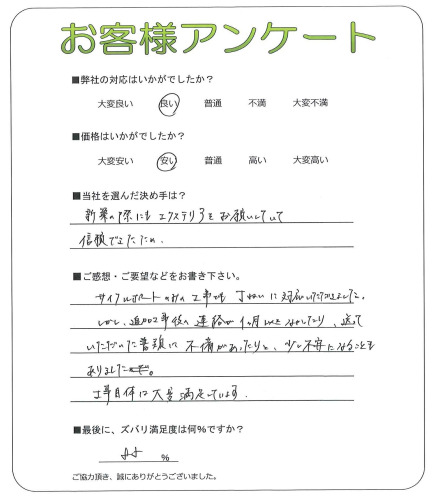 お客様アンケート
■弊社の対応はいかがでしたか？
大変良い 良い 普通 不満 大変不満
■価格はいかがでしたか？
大変安い 安い 普通 高い 大変高い
■当社を選んだ決め手は？
新築の際にも エクステリアを お願いしていて
信頼できたため.
■ご感想・ご要望などをお書き下さい。
サイクルポートのみの工事でも 丁ねいに対応いただきました.
しかし、追加工事後の連絡が1ヶ月以上なかったり、送って
いただいた書類に不備があったりと、少し不安になることも
ありました
工事自体は大変満足しています.
■最後に、ズバリ満足度は何％ですか？
％
ご協力頂き、誠にありがとうございました。